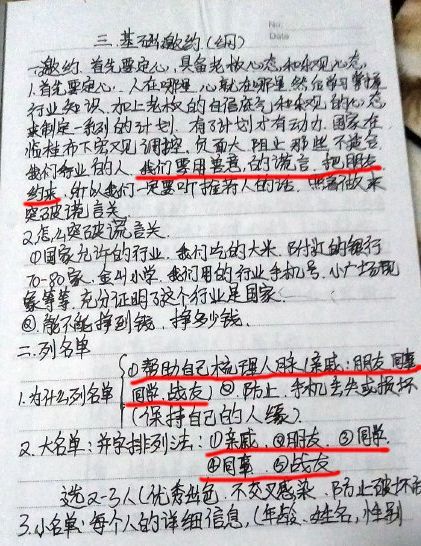 No:
Date
三.基础邀约(纲)
一邀约.首先要定心,具备老板心态,和乐观心态,
1.首先要定心.人在哪里.心就在哪里.然后学习掌握
行业知识.加上老板的自信底气,和乐观的心态,
来制定一系列的计划.有了计划才有动力.国家在
临桂布下宏观调控.负面大.阻止那些不适合
我们行业的人.我们要用善意,的谎言.把朋友
约来.所以我们一定要听推荐人的话.照着做来
突破谎言关.
2.怎么突破谎言关.
①国家允许的行业.我们吃的大米.附近的银行
70-80家.金斗小学.我们用的行业手机号.小广场现
象等等.充分证明了这个行业是国家.
②.能不能挣到钱.挣多少钱.
二.列名单
1.为什么列名单
①帮助自己梳理人脉(亲戚:朋友.同事
同学.战友)②.防止.手机丢失或损坏
(保持自己的人缘)
2.大名单:并字排列法:①亲戚.②朋友.③同学.
④同事.⑤战友
选2-3人(优秀出色.不交叉感染.防止破坏
3.小名单:每个人的详细信息,(年龄.姓名,性别